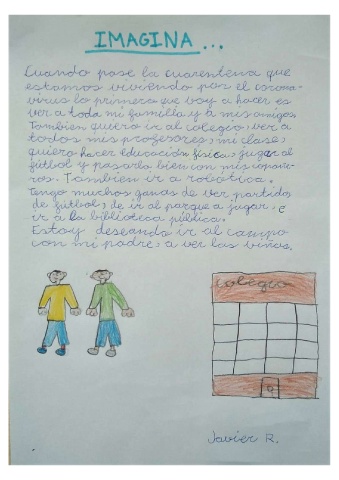 IMAGINA...
Cuando pase la cuarentena que
estamos viviendo por el corona-
virus lo primero que voy a hacer es
ver a toda mi familia y a mis amigos.
Tambien quiero ir al colegio, ver a
todos mis profesores, mi clase,
quiero hacer educación física, jugar al
fútbol y pasarlo bien con mis compañe-
ros. Tambien ir a robótica.
Tengo muchos ganas de ver partidos
de fútbol, de ir al parque a jugar, e
ir a la biblioteca pública.
Estoy deseando ir al campo
con mi padre, a ver las viñas.
colegio
Javier R.